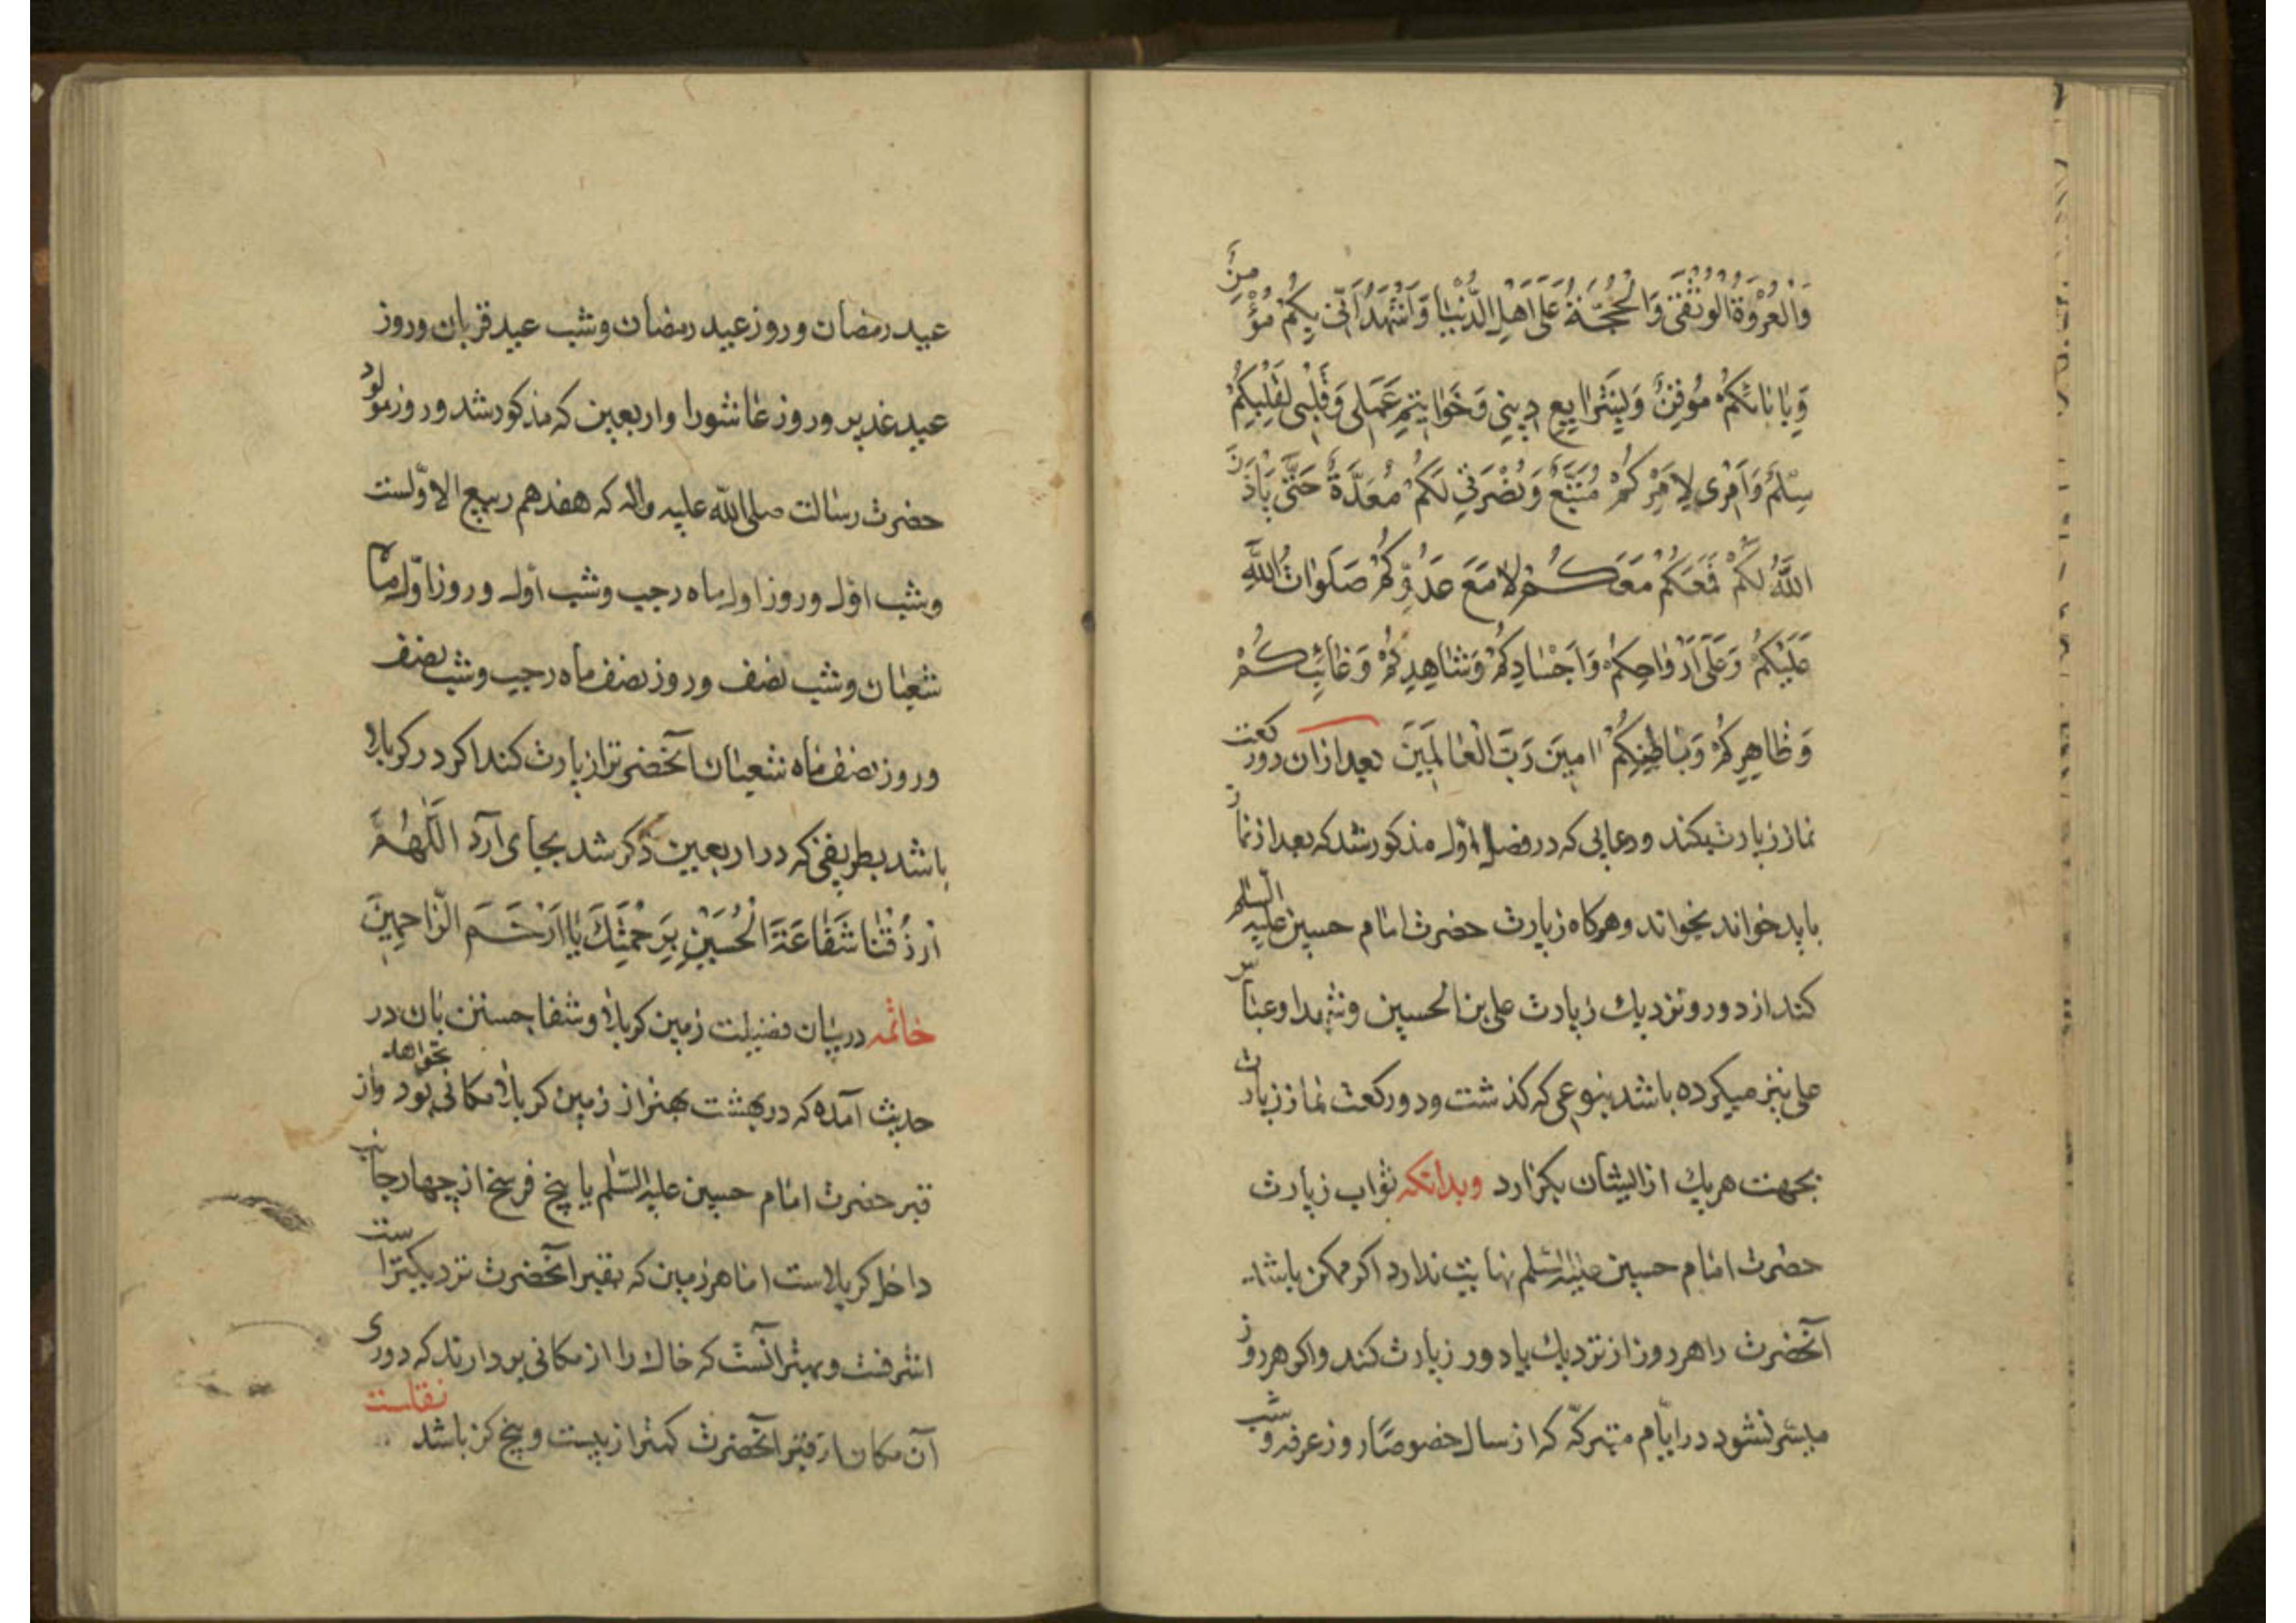 وَالْعُرْوَةُ الْوُثْقَىٰ وَالْحُجَّةُ عَلَىٰ اَهْلِ الدُّنْيَا وَاَشْهَدُ اَنِّی بِكُمْ مُؤْمِنٌ
وَبِاِيَابِكُمْ مُوقِنٌ بِشَرَايِعِ دِينِی وَخَوَاتِيمِ عَمَلِی وَقَلْبِی لِقَلْبِكُمْ
سِلْمٌ وَاَمْرِی لِاَمْرِكُمْ مُتَّبِعٌ وَنُصْرَتِی لَكُمْ مُعَدَّةٌ حَتّٰی يَأْذَنَ
اللَّهُ لَكُمْ فَمَعَكُمْ مَعَكُمْ لَا مَعَ عَدُوِّكُمْ صَلَوَاتُ اللَّهِ
عَلَيْكُمْ وَعَلَىٰ اَرْوَاحِكُمْ وَاَجْسَادِكُمْ وَشَاهِدِكُمْ وَغَائِبِكُمْ
وَظَاهِرِكُمْ وَبَاطِنِكُمْ امِينَ رَبَّ الْعَالَمِينَ بعد ازان دو ركعت
نماز زيارت بكند و دعايی كه در فصل اول مذكور شد كه بعد از نماز
بايد خواند بخواند و هركاه زيارت حضرت امام حسين عليه السلم
كند از دور و نزديك زيارت علی بن الحسين و شهدا و عباس
علی نيز ميكرده باشد بنوعی كه كذشت و دو ركعت نماز زيارت
بجهت هريك از ايشان بكزارد و بدانكه ثواب زيارت
حضرت امام حسين عليه السلم نهايت ندارد اكر ممكن باشد
آنحضرت را هر روز از نزديك يا دور زيارت كند و اكر هر روز
ميسّر نشود در ايّام متبركّه از سال خصوصًا روز عرفه و شب
عيد رمضان و روز عيد رمضان و شب عيد قربان و روز
عيد غدير و روز عاشورا و اربعين كه مذكور شد و روز مولود
حضرت رسالت صلی اللّه عليه واله كه هفدهم ربيع الاوّلست
و شب اوّل و روز اول ماه رجب و شب اول و روز اوّل ماه
شعبان و شب نصف و روز نصف ماه رجب و شب نصف
و روز نصف ماه شعبان آنحضرترا زيارت كند اكر در كربلا
باشد بطريقی كه در اربعين ذكر شد بجای آرد اللّٰهُمَّ
ارْزُقْنَا شَفَاعَةَ الْحُسَيْنِ بِرَحْمَتِكَ يَا اَرْحَمَ الرَّاحِمِينَ
خاتمه در بيان فضيلت زمين كربلا و شفا جستن بان در
حديث آمده كه در بهشت بهتر از زمين كربلا مكانی نخواهد بود و از
قبر حضرت امام حسين عليه السّلم يا پنج فرسخ از چهار جانب
داخل كربلاست اما هر زمين كه بقبر آنحضرت نزديكتر است
اشرفست و بهتر آنست كه خاك را از مكانی بردارند كه دوری
آن مكان از قبر آنحضرت كمتر از بيست و پنج كز باشد
نقلست